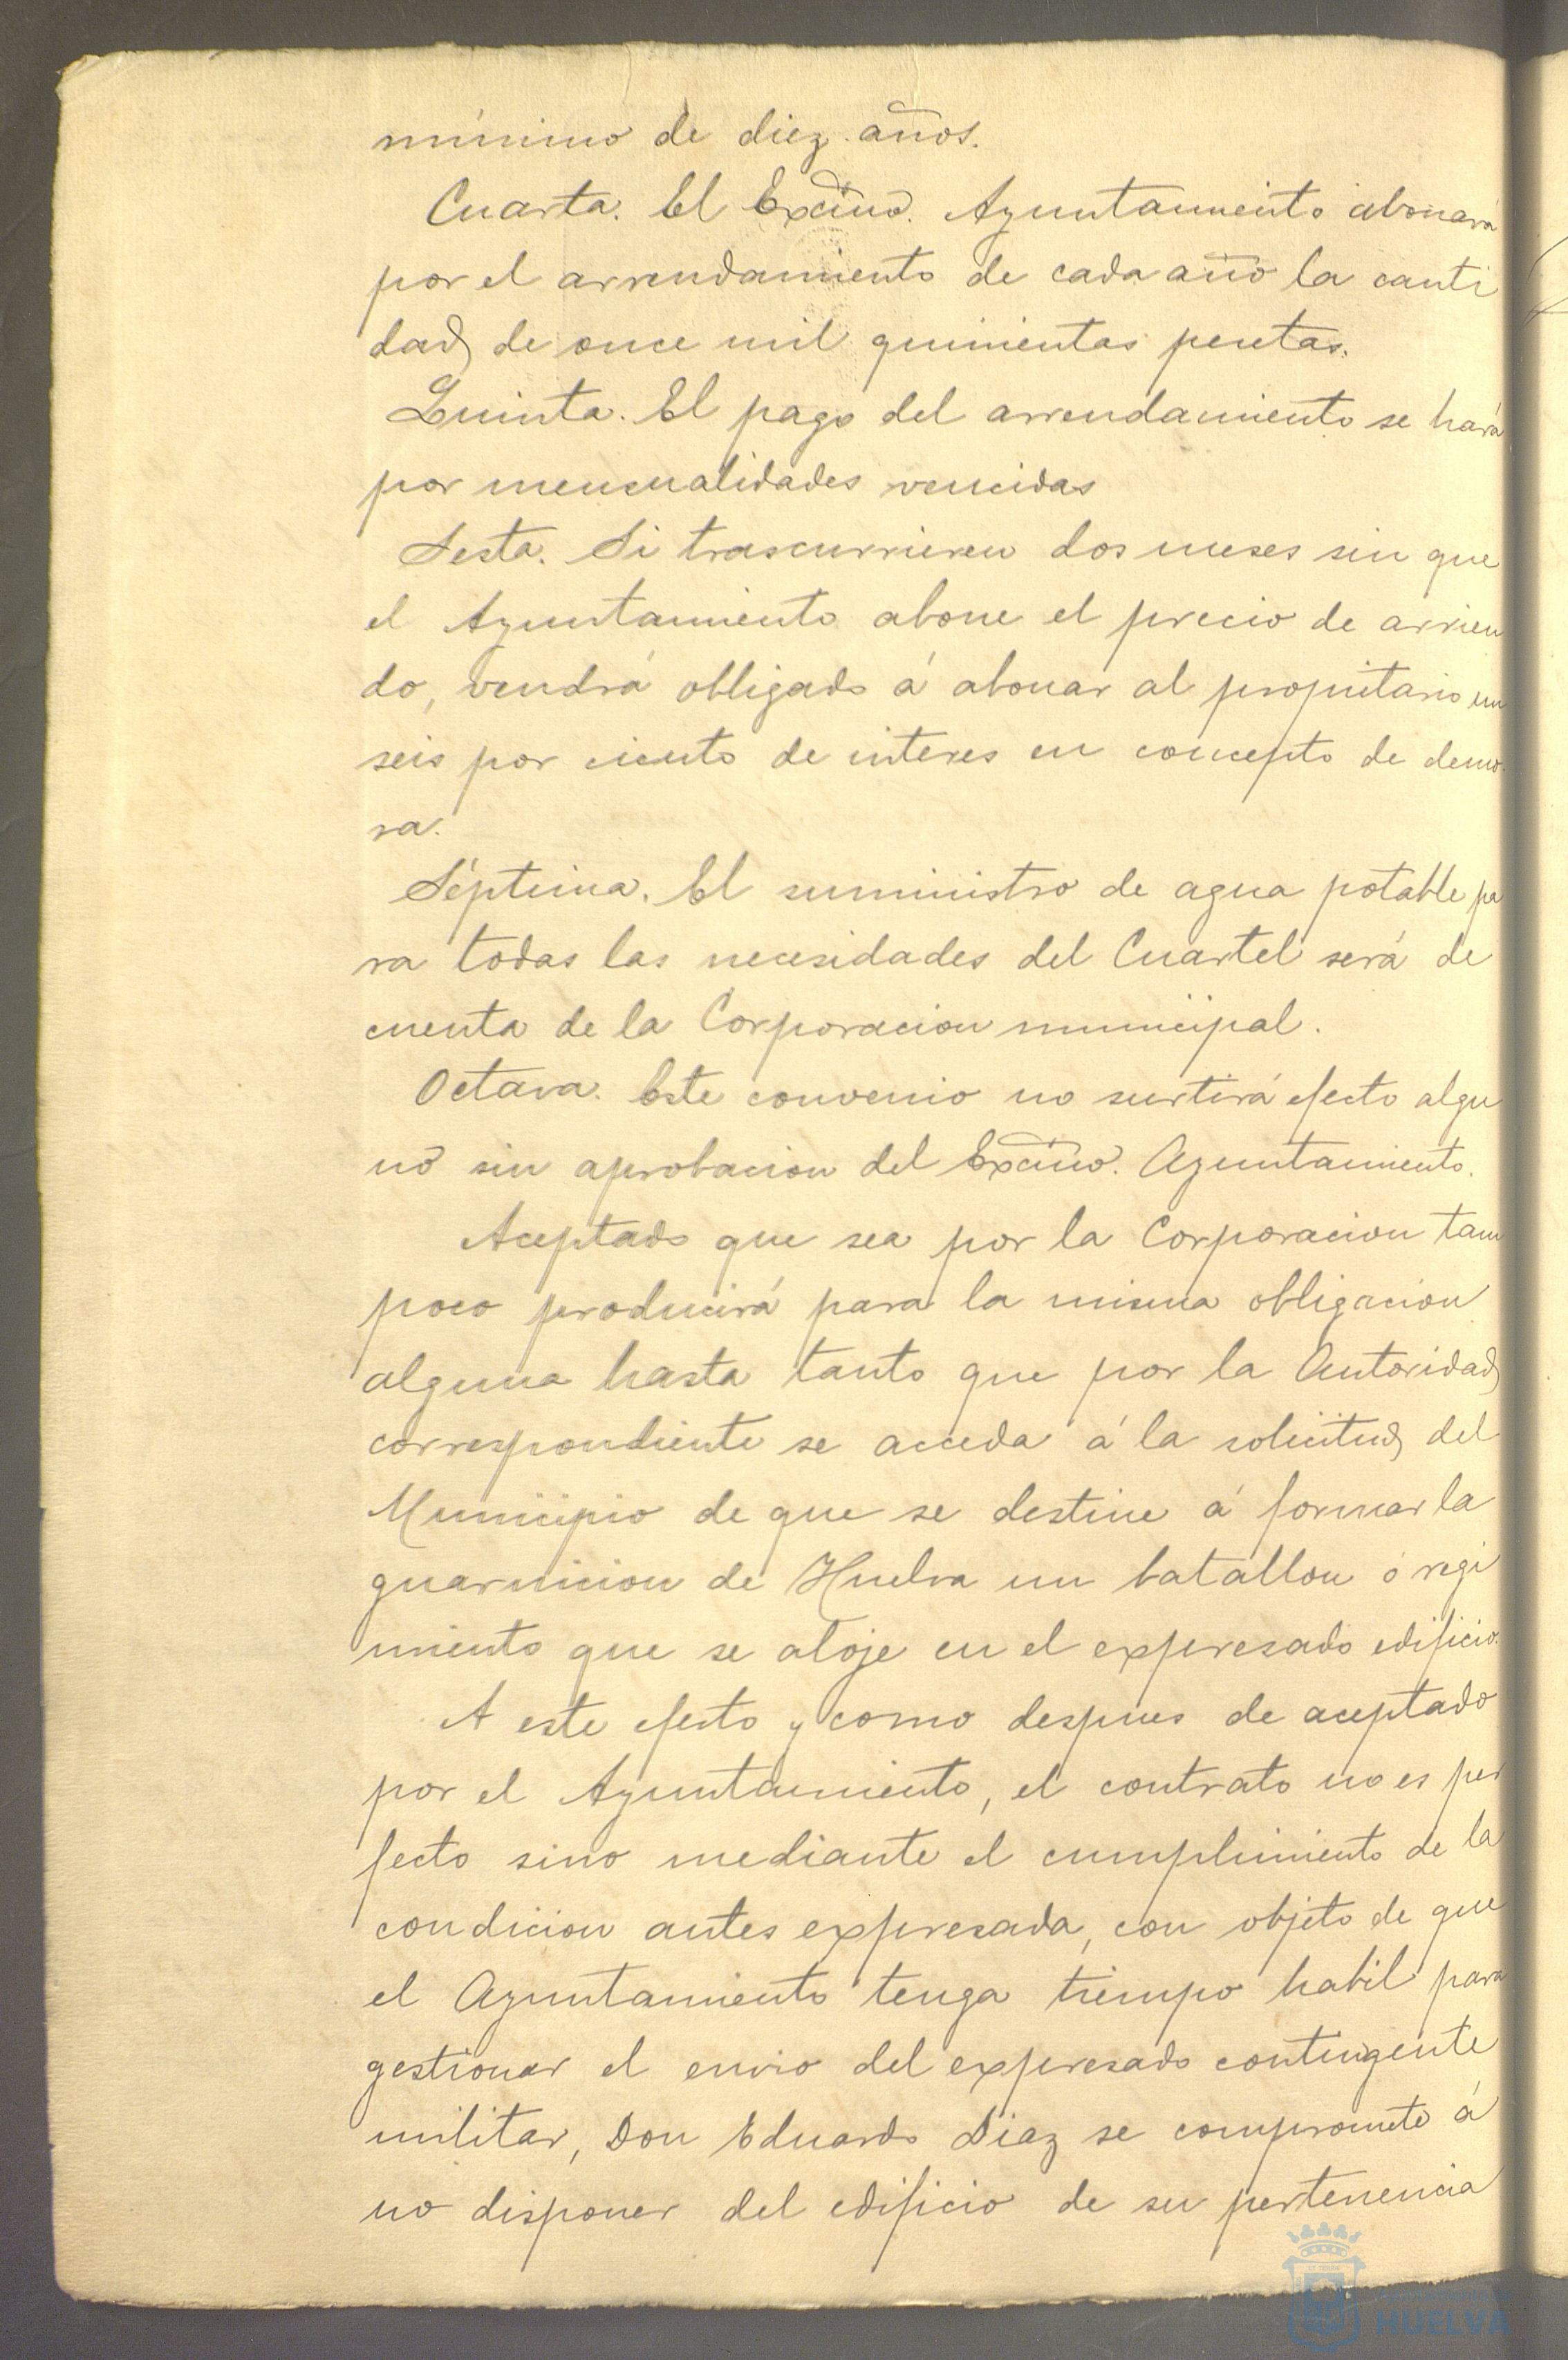 mínimo de diez años.
Cuarta. El Excmo. Ayuntamiento abonará
por el arrendamiento de cada año la canti
dad de once mil quinientas pesetas.
Quinta. El pago del arrendamiento se hará
por mensualidades vencidas
Sesta. Si trascurrieren dos meses sin que
el Ayuntamiento abone el precio de arrien
do, vendrá obligado á abonar al propietario un
seis por ciento de interes en concepto de demo
ra.
Séptima. El suministro de agua potable pa
ra todas las necesidades del Cuartel será de
cuenta de la Corporacion municipal.
Octava. Este convenio no surtirá efecto algu
no sin aprobacion del Excmo. Ayuntamiento.
Aceptado que sea por la Corporacion tam
poco producirá para la misma obligacion
alguna hasta tanto que por la Autoridad
correspondiente se acceda á la solicitud del
Municipio de que se destine á formar la
guarnicion de Huelva un batallon ó regi
miento que se aloje en el expresado edificio.
A este efecto y como despues de aceptado
por el Ayuntamiento, el contrato no es per
fecto sino mediante el cumplimiento de la
condicion antes expresada, con objeto de que
el Ayuntamiento tenga tiempo habil para
gestionar el envio del expresado contingente
militar, Don Eduardo Diaz se compromete á
no disponer del edificio de su pertenencia
HUELVA